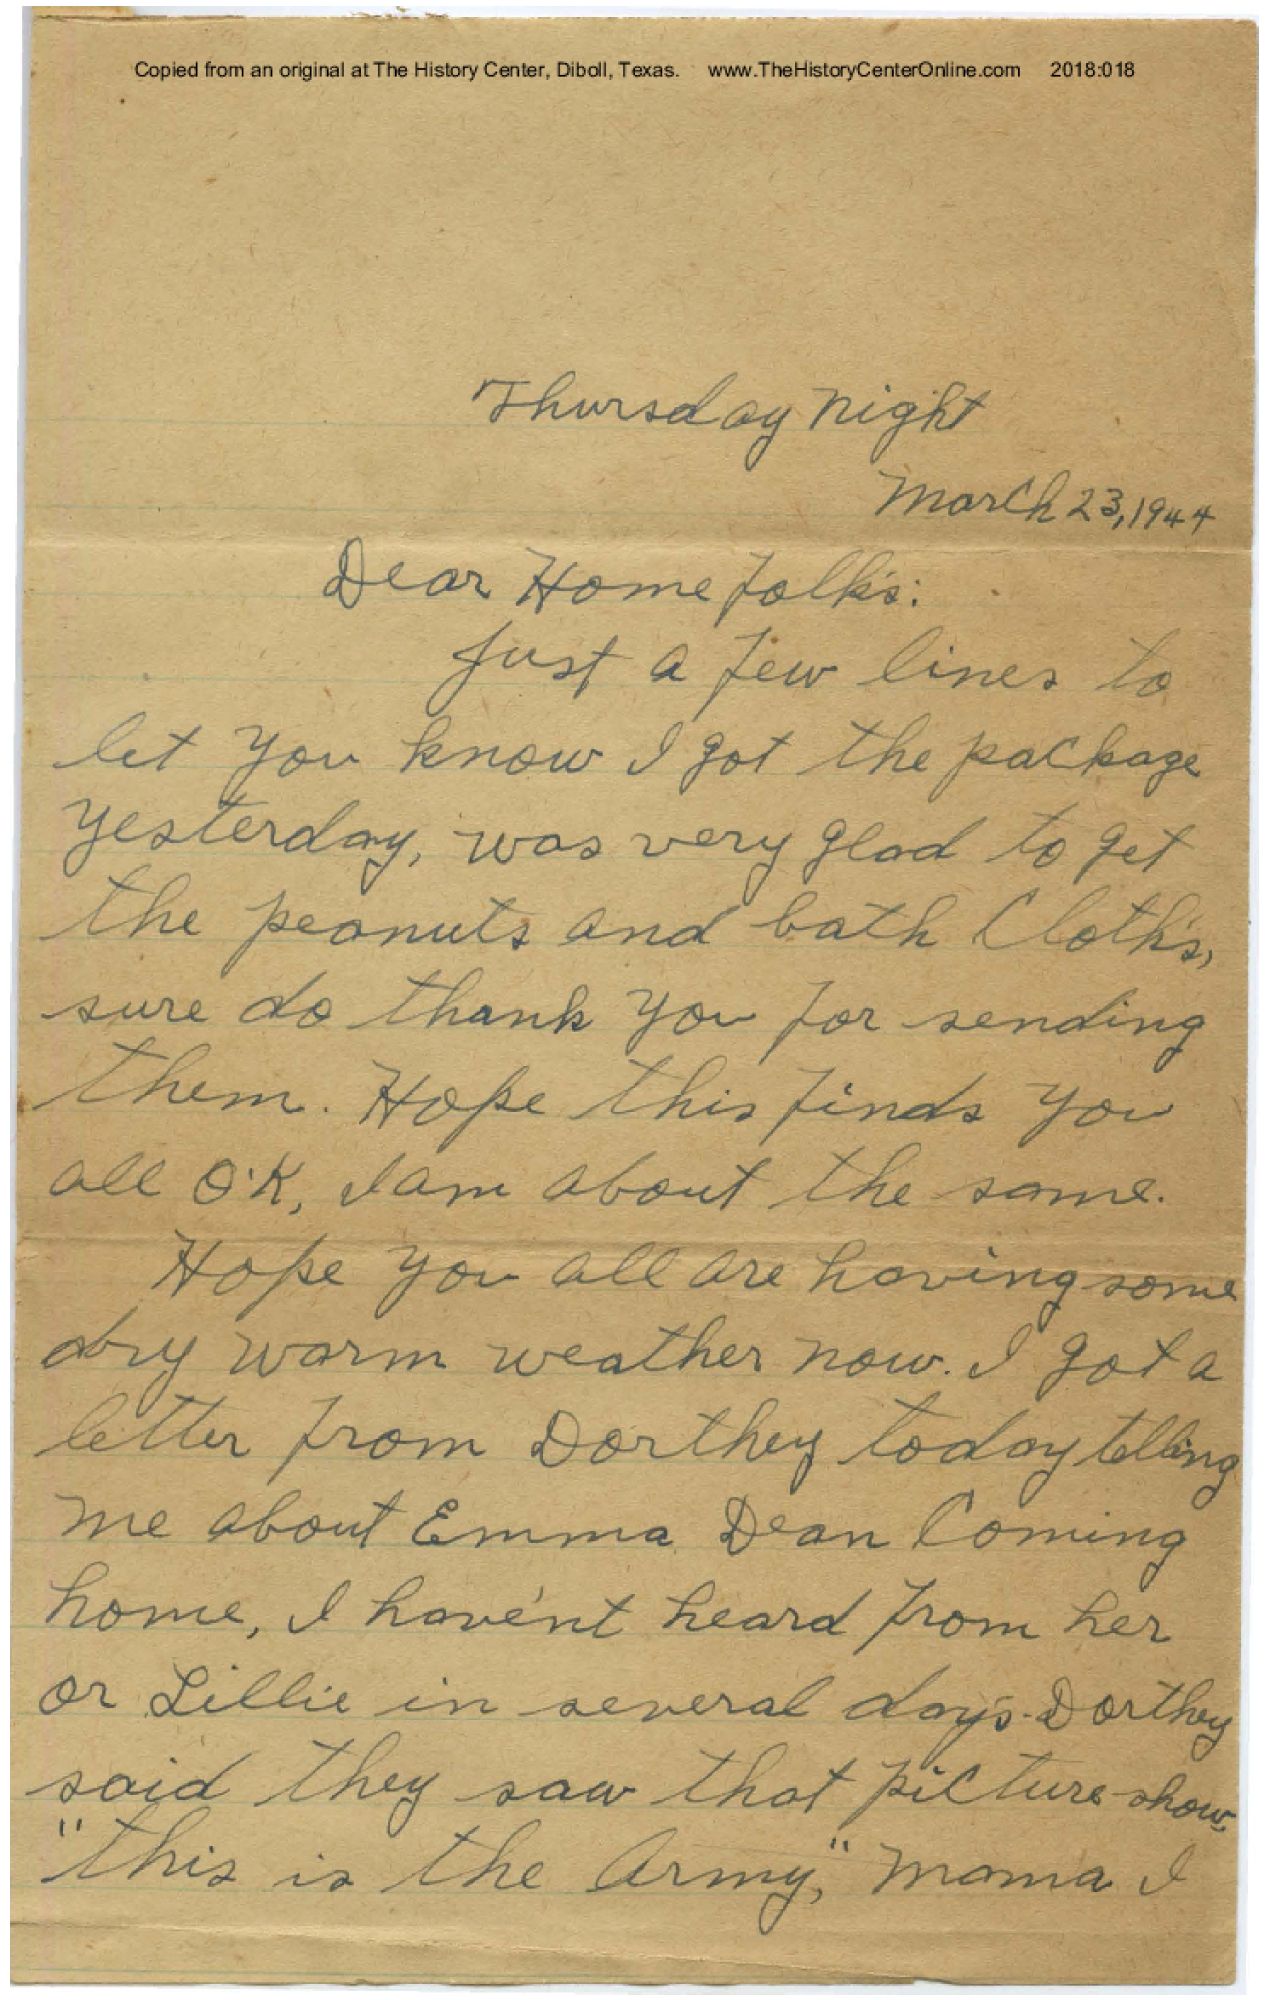 Copied from an original at The History Center, Diboll, Texas. www.TheHistoryCenterOnline.com 2018:018
Thursday night
March 23, 1944
Dear Home folk's:
Just a few lines to
let you know I got the package
yesterday, was very glad to get
the peanuts and bath Cloth's,
sure do thank you for sending
them. Hope this finds you
all O'K, I am about the same.
Hope you all are having some
dry warm weather now. I got a
letter from Dorthey today telling
me about Emma Dean Coming
home, I have'nt heard from her
or Lillie in several day's. Dorthey
said they saw that picture show,
"this is the Army," mama I